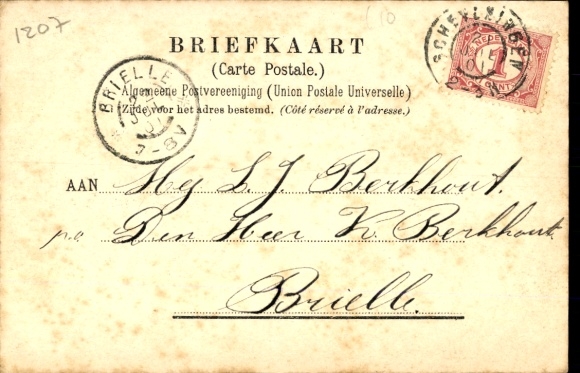 1207
BRIEFKAART
(Carte Postale.)
Algemeene Postvereeniging (Union Postale Universelle)
Zijde voor het adres bestemd. (Côté réservé à l'adresse.)
SCHEVENINGEN
NEDERL
1
CENT
BRIELLE
7-8V
AAN Mej L. J. Berkhout.
p.a. Den Heer K. Berkhout.
Brielle.